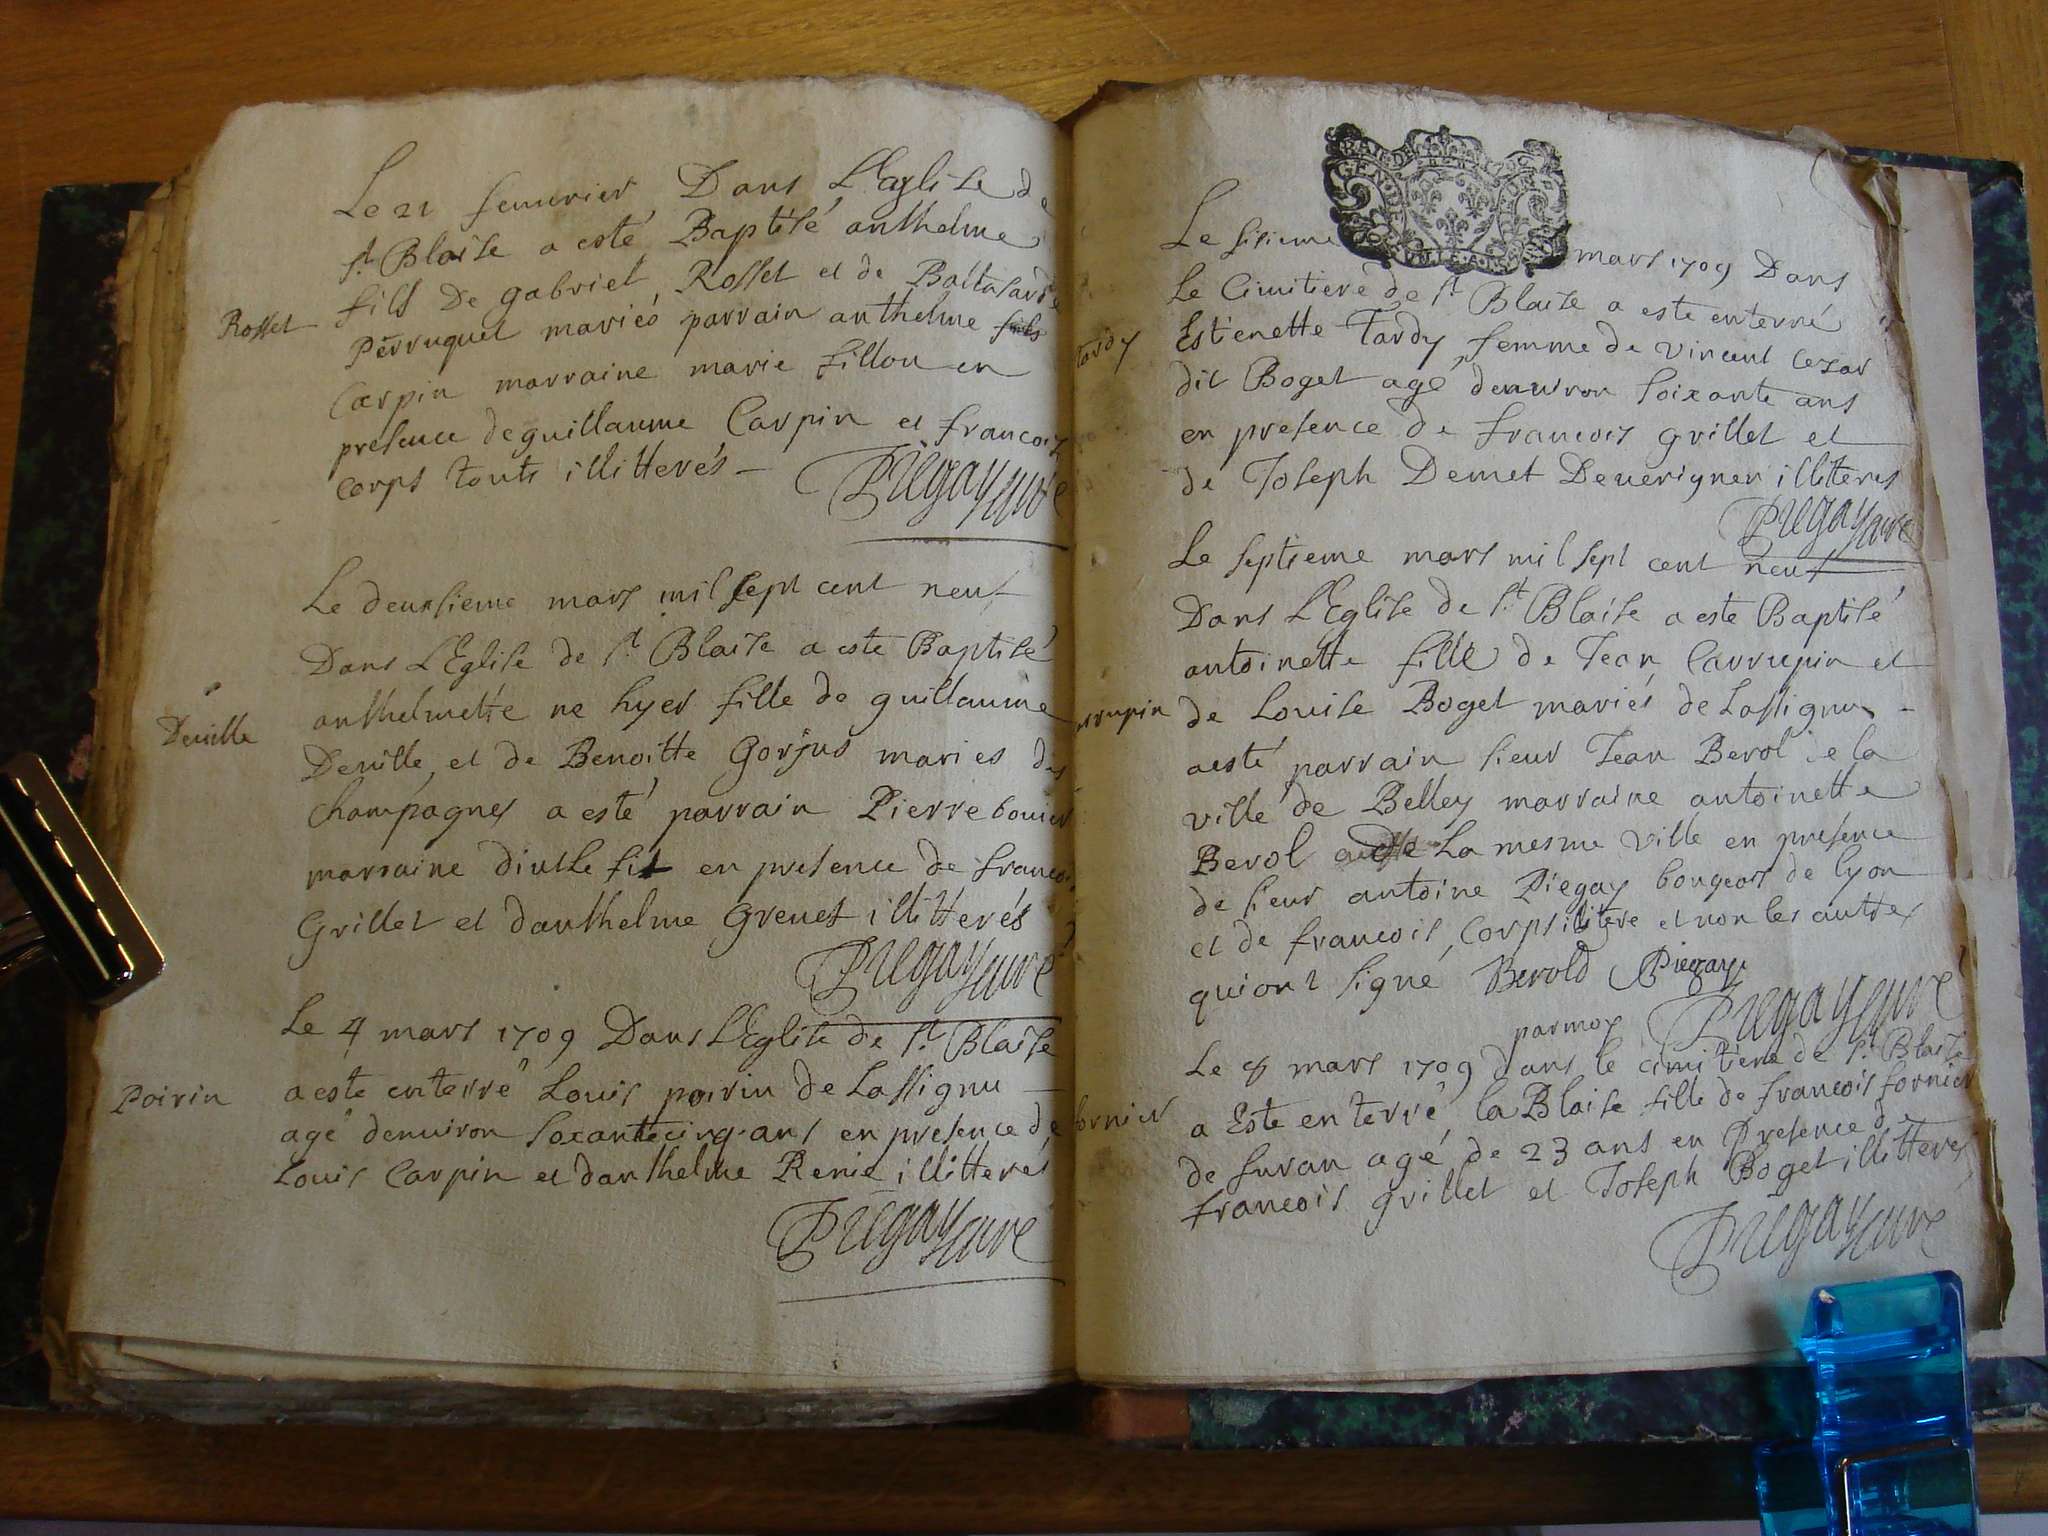 Le 21 feuurier Dans L'aglise de
st Blaise a esté Baptisé anthelme
fils De gabriel Rosset et de Baltasarde
Rosset
Perruquet mariés parrain anthelme
Carpin marraine marie fillon en
presence de guillaume Carpin et francois
corps touts illitterés
Piegay curé
Le deuxsieme mars mil sept cent neuf
Dans L'Eglise de st Blaise a este Baptisé
anthelmette ne hyer fille de guillaume
Deuille
Deuille et de Benoitte Gorjus maries des
champagnes a esté parrain Pierre bouier
marraine en presence de francois
Grillet et danthelme Grenet illitterés
Piegay curé
Le 4 mars 1709 Dans L'Eglise de st Blaise
a este enterré Louis poirin de Lassignu
Poirin
agé denuiron soxantecinq ans en presence de
Louis Carpin et danthelme Renie illitterés
Piegay curé
Le sisieme mars 1709 Dans
Le Cimitiere de st Blaise a este enterré
Estienette Tardy femme de vincent cezar
tardy
dit Boget agé denuiron soixante ans
en presence de francois grillet et
de Joseph Demet Deuerignen illiteres
Piegay curé
Le septieme mars mil sept cent neuf
Dans L'Eglise de st Blaise a este Baptisé
antoinette fille de Jean Carrupin et
de Louise Boget mariés de Lassignu
rrupin
a esté parrain sieur Jean Berol de la
ville de Belley marraine antoinette
Berol La mesme ville en presence
de sieur antoine Piegay bougeois de lyon
et de francois Corps ilitere et non les autres
qui ont signé Berold Piegay
Piegay curé
par moy
Le 8 mars 1709 dans le cimitiere de st Blaise
a Este enterré la Blaise fille de francois fornier
fornier
de suran agé de 23 ans en Presence de
francois grillet et Joseph Boget illitteres
Piegay curé